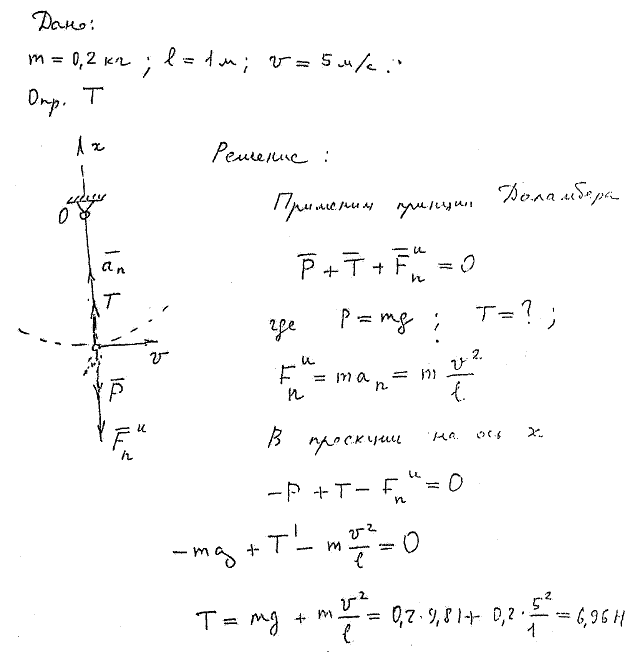 Дано:
m = 0,2 кг ; l = 1 м ; v = 5 м/с.
Опр. T
x
Решение :
O
Применим принцип Даламбера
a̅ₙ
P̅ + T̅ + F̅ₙᵘ = 0
T
где P = mg ; T = ? ;
v
Fₙᵘ = maₙ = m v²/l
P̅
F̅ₙᵘ
В проекции на ось x
-P + T - Fₙᵘ = 0
-mg + T - m v²/l = 0
T = mg + m v²/l = 0,2·9,81 + 0,2· 5²/1 = 6,96 Н